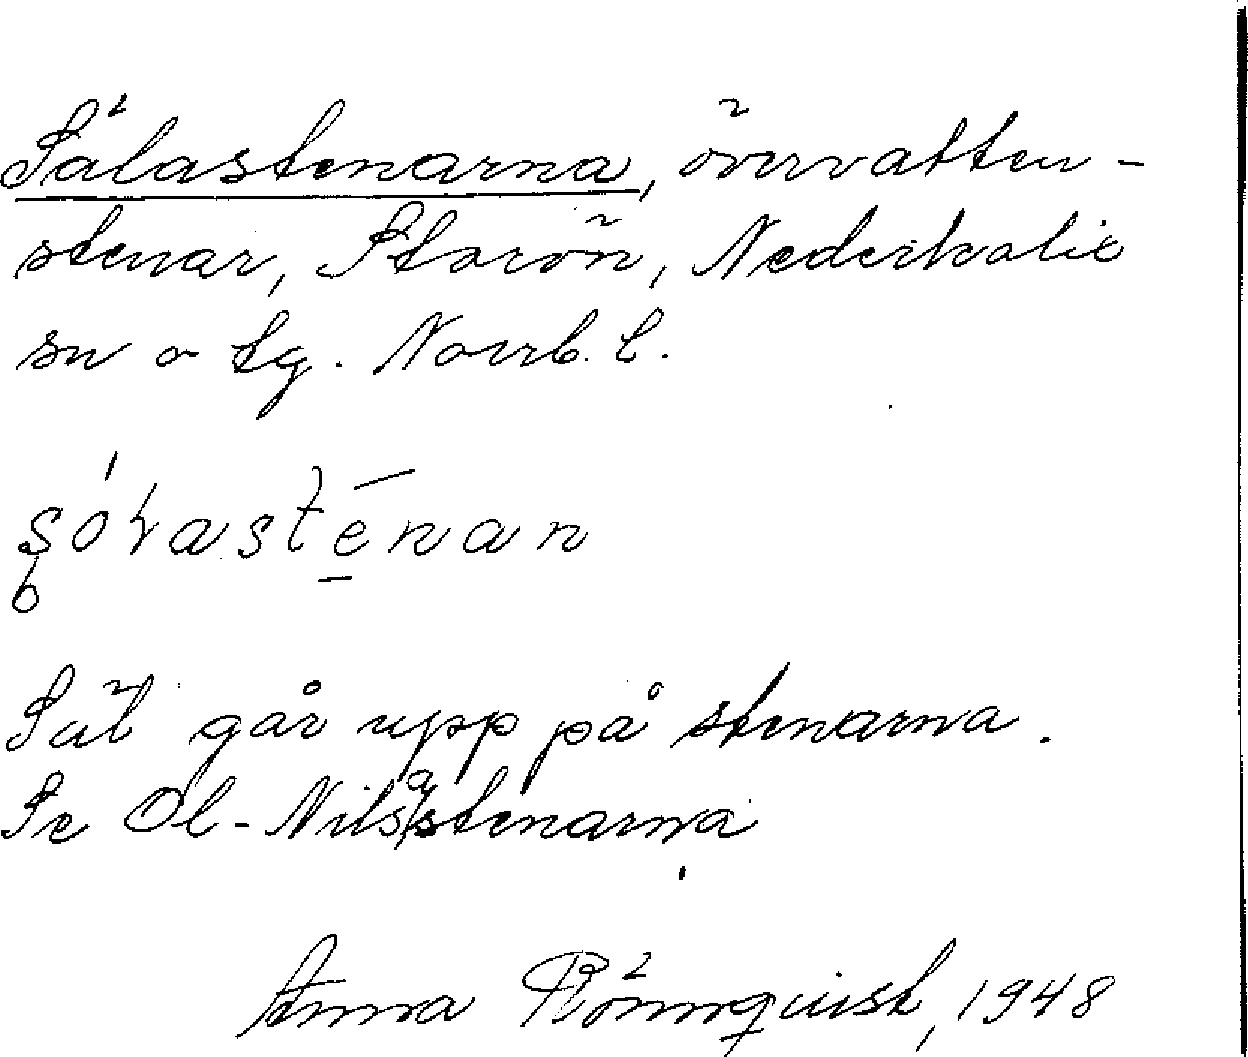 Sälastenarna, övervatten-
stenar, Storön, Nederkalix
sn o tg. Norrb. l.
Säl går upp på stenarna.
Se Ol-Nilsastenarna
Anna Rönnquist, 1948